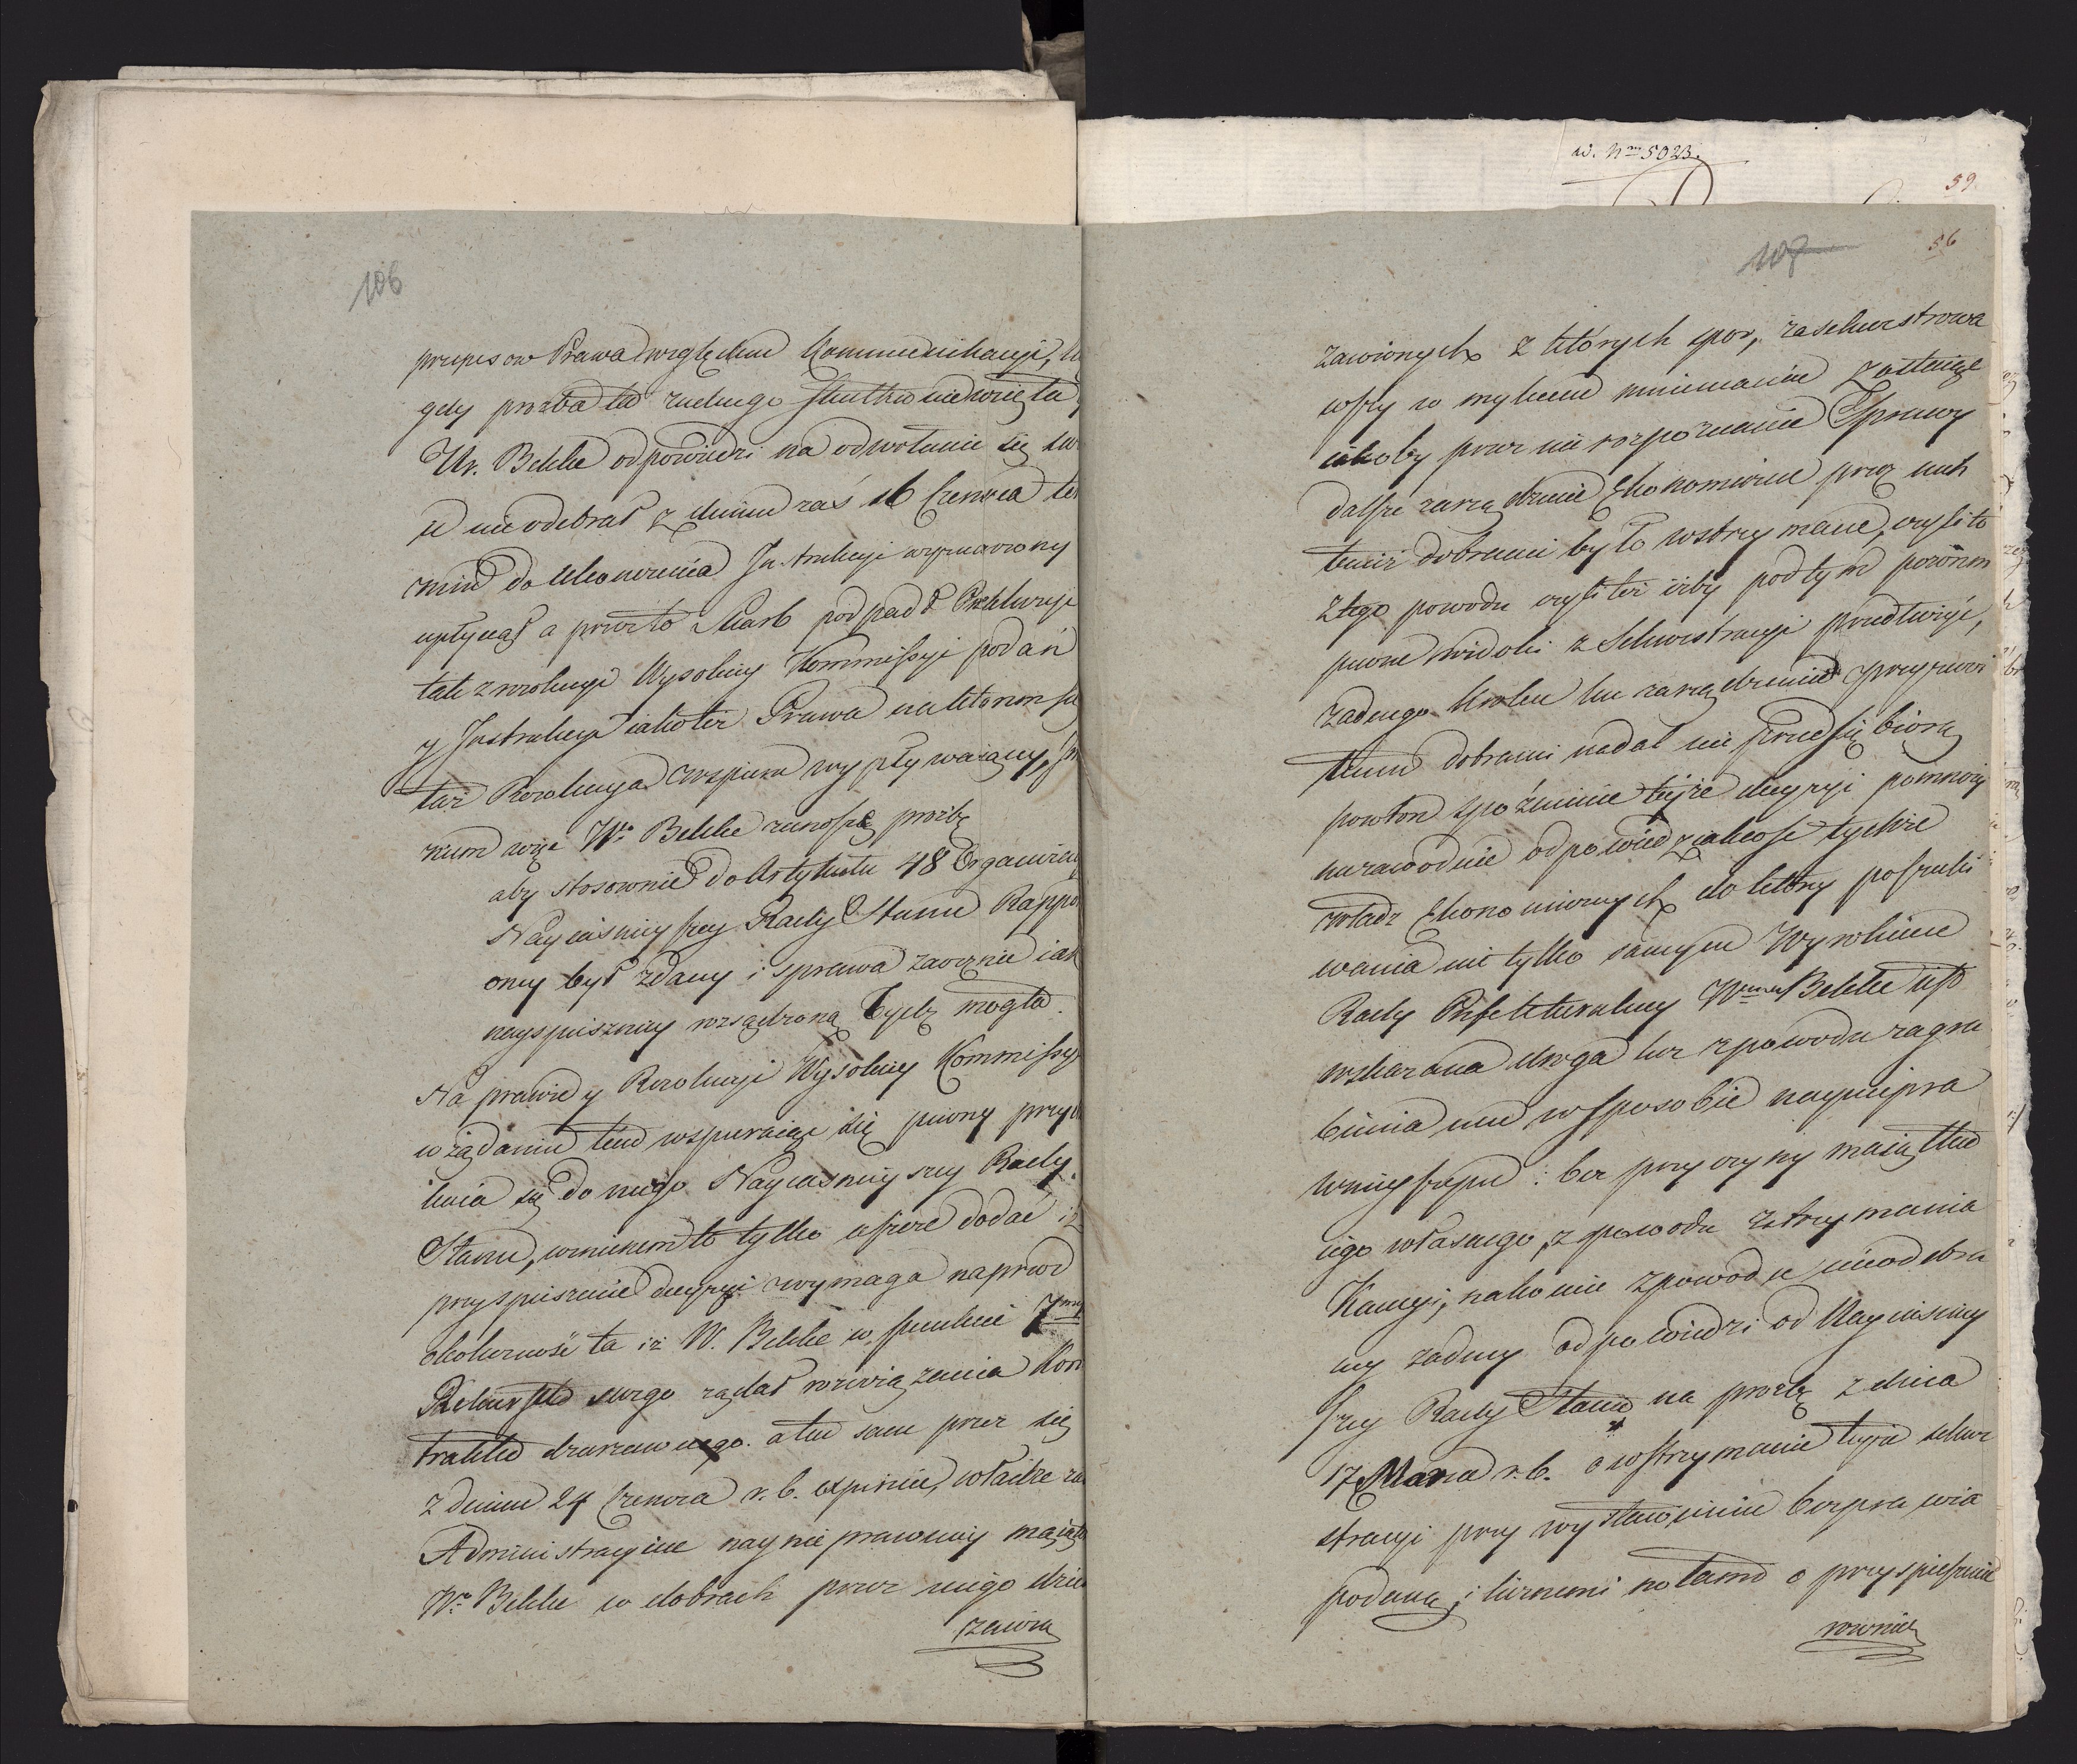 106
przepisow Prawa względem Kommunikacyi,
gdy prozba ta żadnego skutku niewzięła,
Ur. Bekke odpowiedzi na odwołanie się
u nie odebrał z dniem zaś 16 Czerwca
min do ukończenia Instrukcyi wyznaczony
upłynął a przeto Skarb podpadł Prekluzyi
tak z rezolucyi Wysokiey Kommissyi podań
y Instrukcyi iakoteż Prawa na którem
taż Rezolucya wspiera wypływaiącey,
więc Wny Bekke zanosze prozbę
aby stosownie do Artykułu 48 Organiczn
Nayiaśnieyszey Rady Stanu Rappo
ony był zdany i sprawa zaocznie iak
nayspieszniey rozsądzoną bydz mogła.
Na prawie y Rezolucyi Wysokiey Kommissyi
w żądaniu tem wspieraiąc się pewny przy
do niego Nayiasnieyszey Rady
Stanu, winienem to tylko ieszcze dodać iż
przyspieszenie decyzyi wymaga naprzod
okoliczność ta iż W. Bekke w punkcie 7mym
Rekursu swego żądał rozwiązania Kon
traktu dzierzawnego. a tu sam przez się
z dniem 24 Czerwca r. b. expiruie, władze za
Administracyine nay nie prawniey maiątek
Wo Bekke w dobrach przez niego dzier
żawio
w. Nro 5023.
59.
56
107
zawionych z których spor, zasekwestrowa
wszy w mylnem mniemaniu Zostaiąc
iakoby przez nie rozpoznanie Sprawy
dalsze zarządzenie Ekonomiczne przez nich
temiż dobrami było wstrzymane, czyli to
z tego powodu czyli też iżby pod tym pozorem
pewne widoki z Sekwestracyi przedłużyć,
żadnego kroku ku zarządzeniu przyzwoi
temu dobrami nadal nie przedsiębiorą
powtore spoźnienie teyże decyzyi pomnoży
niezawodnie odpowiedzialność tychże
władz Ekonomicznych do ktorey poszuki
wania nie tylko samym Wyrokiem
Rady Prefekturalney Wmu Bekke iest
wskazana droga lecz z powodu zagra
bienia mu w sposobie nayniepra
wnieyszym: bez przyczyny maiątku
iego własnego, z powodu zatrzymania
Kaucyi, nakoniec z powodu nieodebra
ney żadney odpowiedzi od Nayiasniey
szey Rady Stanu na prozbę z dnia
17 Marca r. b. o wstrzymanie teyże sekwe
stracyi przy wystawieniu bezprawia
podaną, i licznemi notami o przyspieszenie
rownież